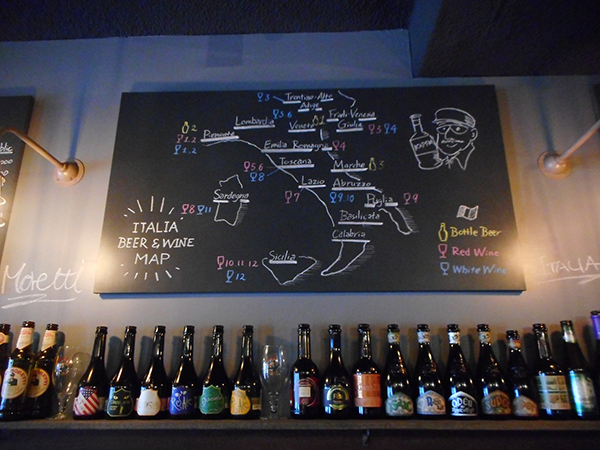 3
Trentino-Alto
Adige
5.6
Lombardia
Friuli-Venezia
2
Veneto
1
Giulia
3
4
1.2
Piemonte
1.2
Emilia Romagna
4
5.6
Toscana
Marche
3
8
Lazio
Abruzzo
Sardegna
7
9.10
Puglia
9
8
11
Basilicata
ITALIA
BEER & WINE
MAP
Calabria
Bottle Beer
Red Wine
White Wine
10.11.12
Sicilia
12
Moretti
ITALIA